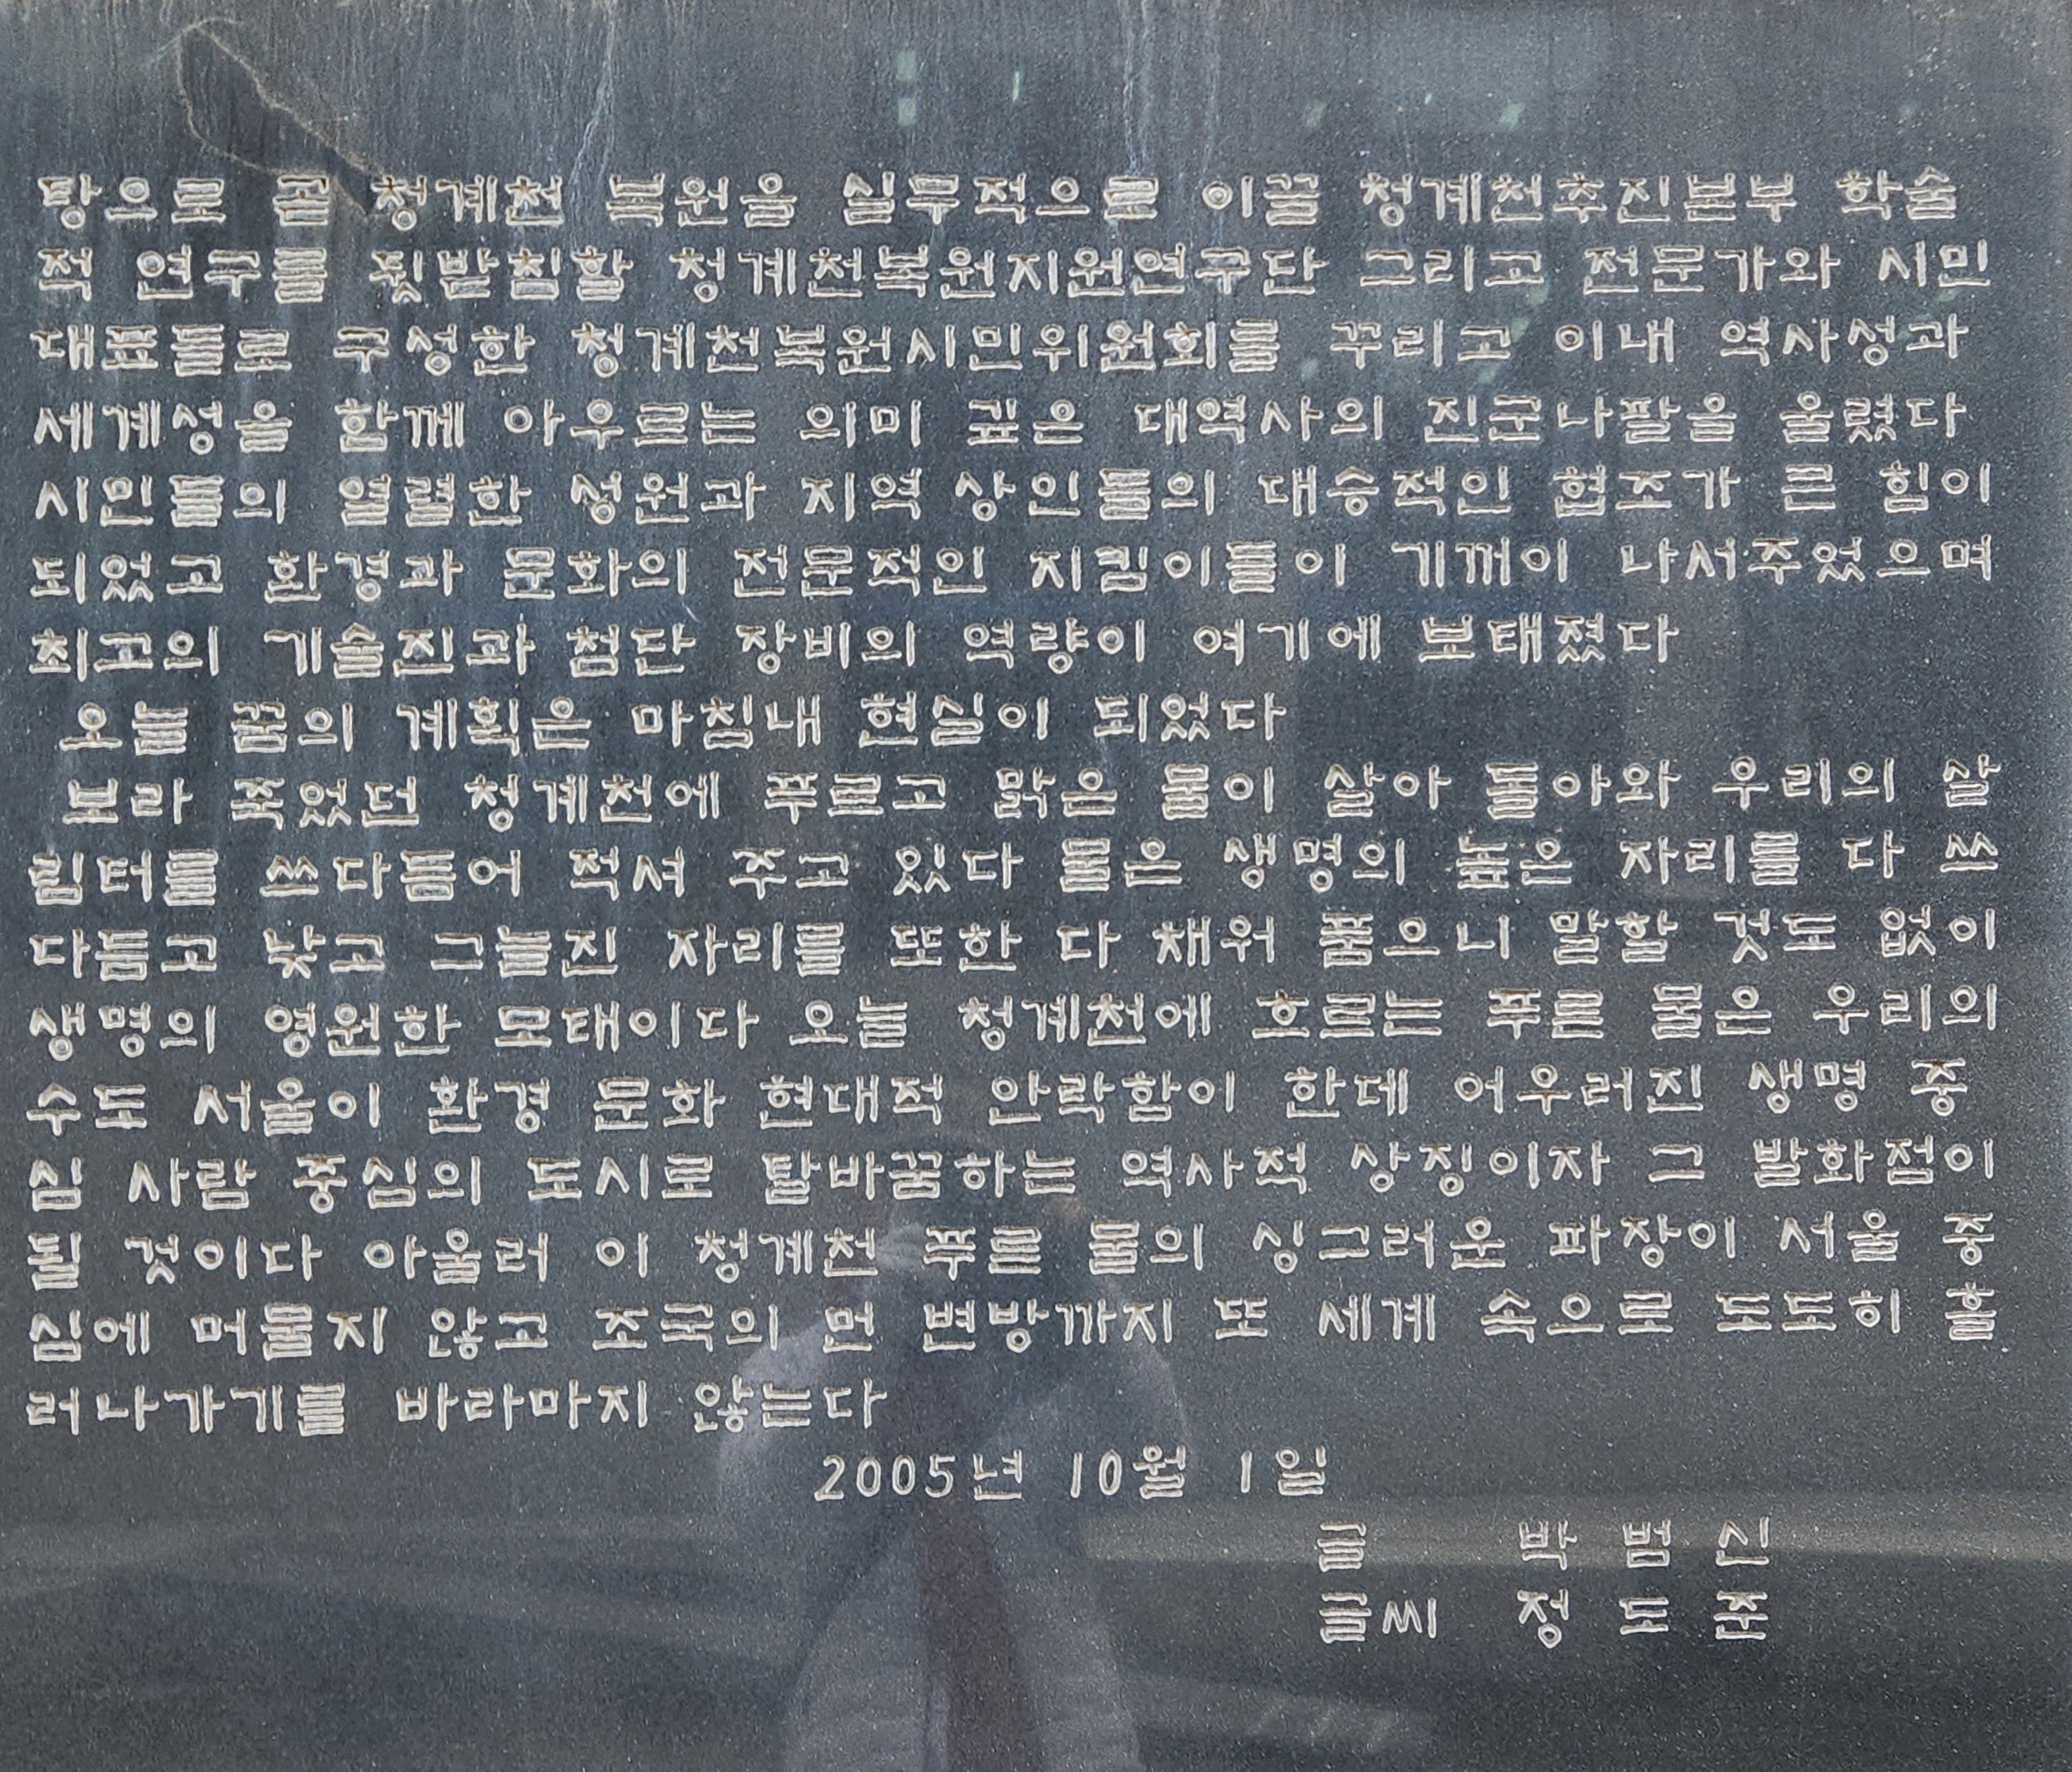 탕으로 곧 청계천 복원을 실무적으로 이끌 청계천추진본부 학술
적 연구를 뒷받침할 청계천복원지원연구단 그리고 전문가와 시민
대표들로 구성한 청계천복원시민위원회를 꾸리고 이내 역사성과
세계성을 함께 아우르는 의미 깊은 대역사의 진군나팔을 울렸다
시민들의 열렬한 성원과 지역 상인들의 대승적인 협조가 큰 힘이
되었고 환경과 문화의 전문적인 지킴이들이 기꺼이 나서주었으며
최고의 기술진과 첨단 장비의 역량이 여기에 보태졌다
오늘 꿈의 계획은 마침내 현실이 되었다
보라 죽었던 청계천에 푸르고 맑은 물이 살아 돌아와 우리의 살
림터를 쓰다듬어 적셔 주고 있다 물은 생명의 높은 자리를 다 쓰
다듬고 낮고 그늘진 자리를 또한 다 채워 품으니 말할 것도 없이
생명의 영원한 모태이다 오늘 청계천에 흐르는 푸른 물은 우리의
수도 서울이 환경 문화 현대적 안락함이 한데 어우러진 생명 중
심 사람 중심의 도시로 탈바꿈하는 역사적 상징이자 그 발화점이
될 것이다 아울러 이 청계천 푸른 물의 싱그러운 파장이 서울 중
심에 머물지 않고 조국의 먼 변방까지 또 세계 속으로 도도히 흘
러나가기를 바라마지 않는다
2005년 10월 1일
글 박 범 신
글씨 정 도 준